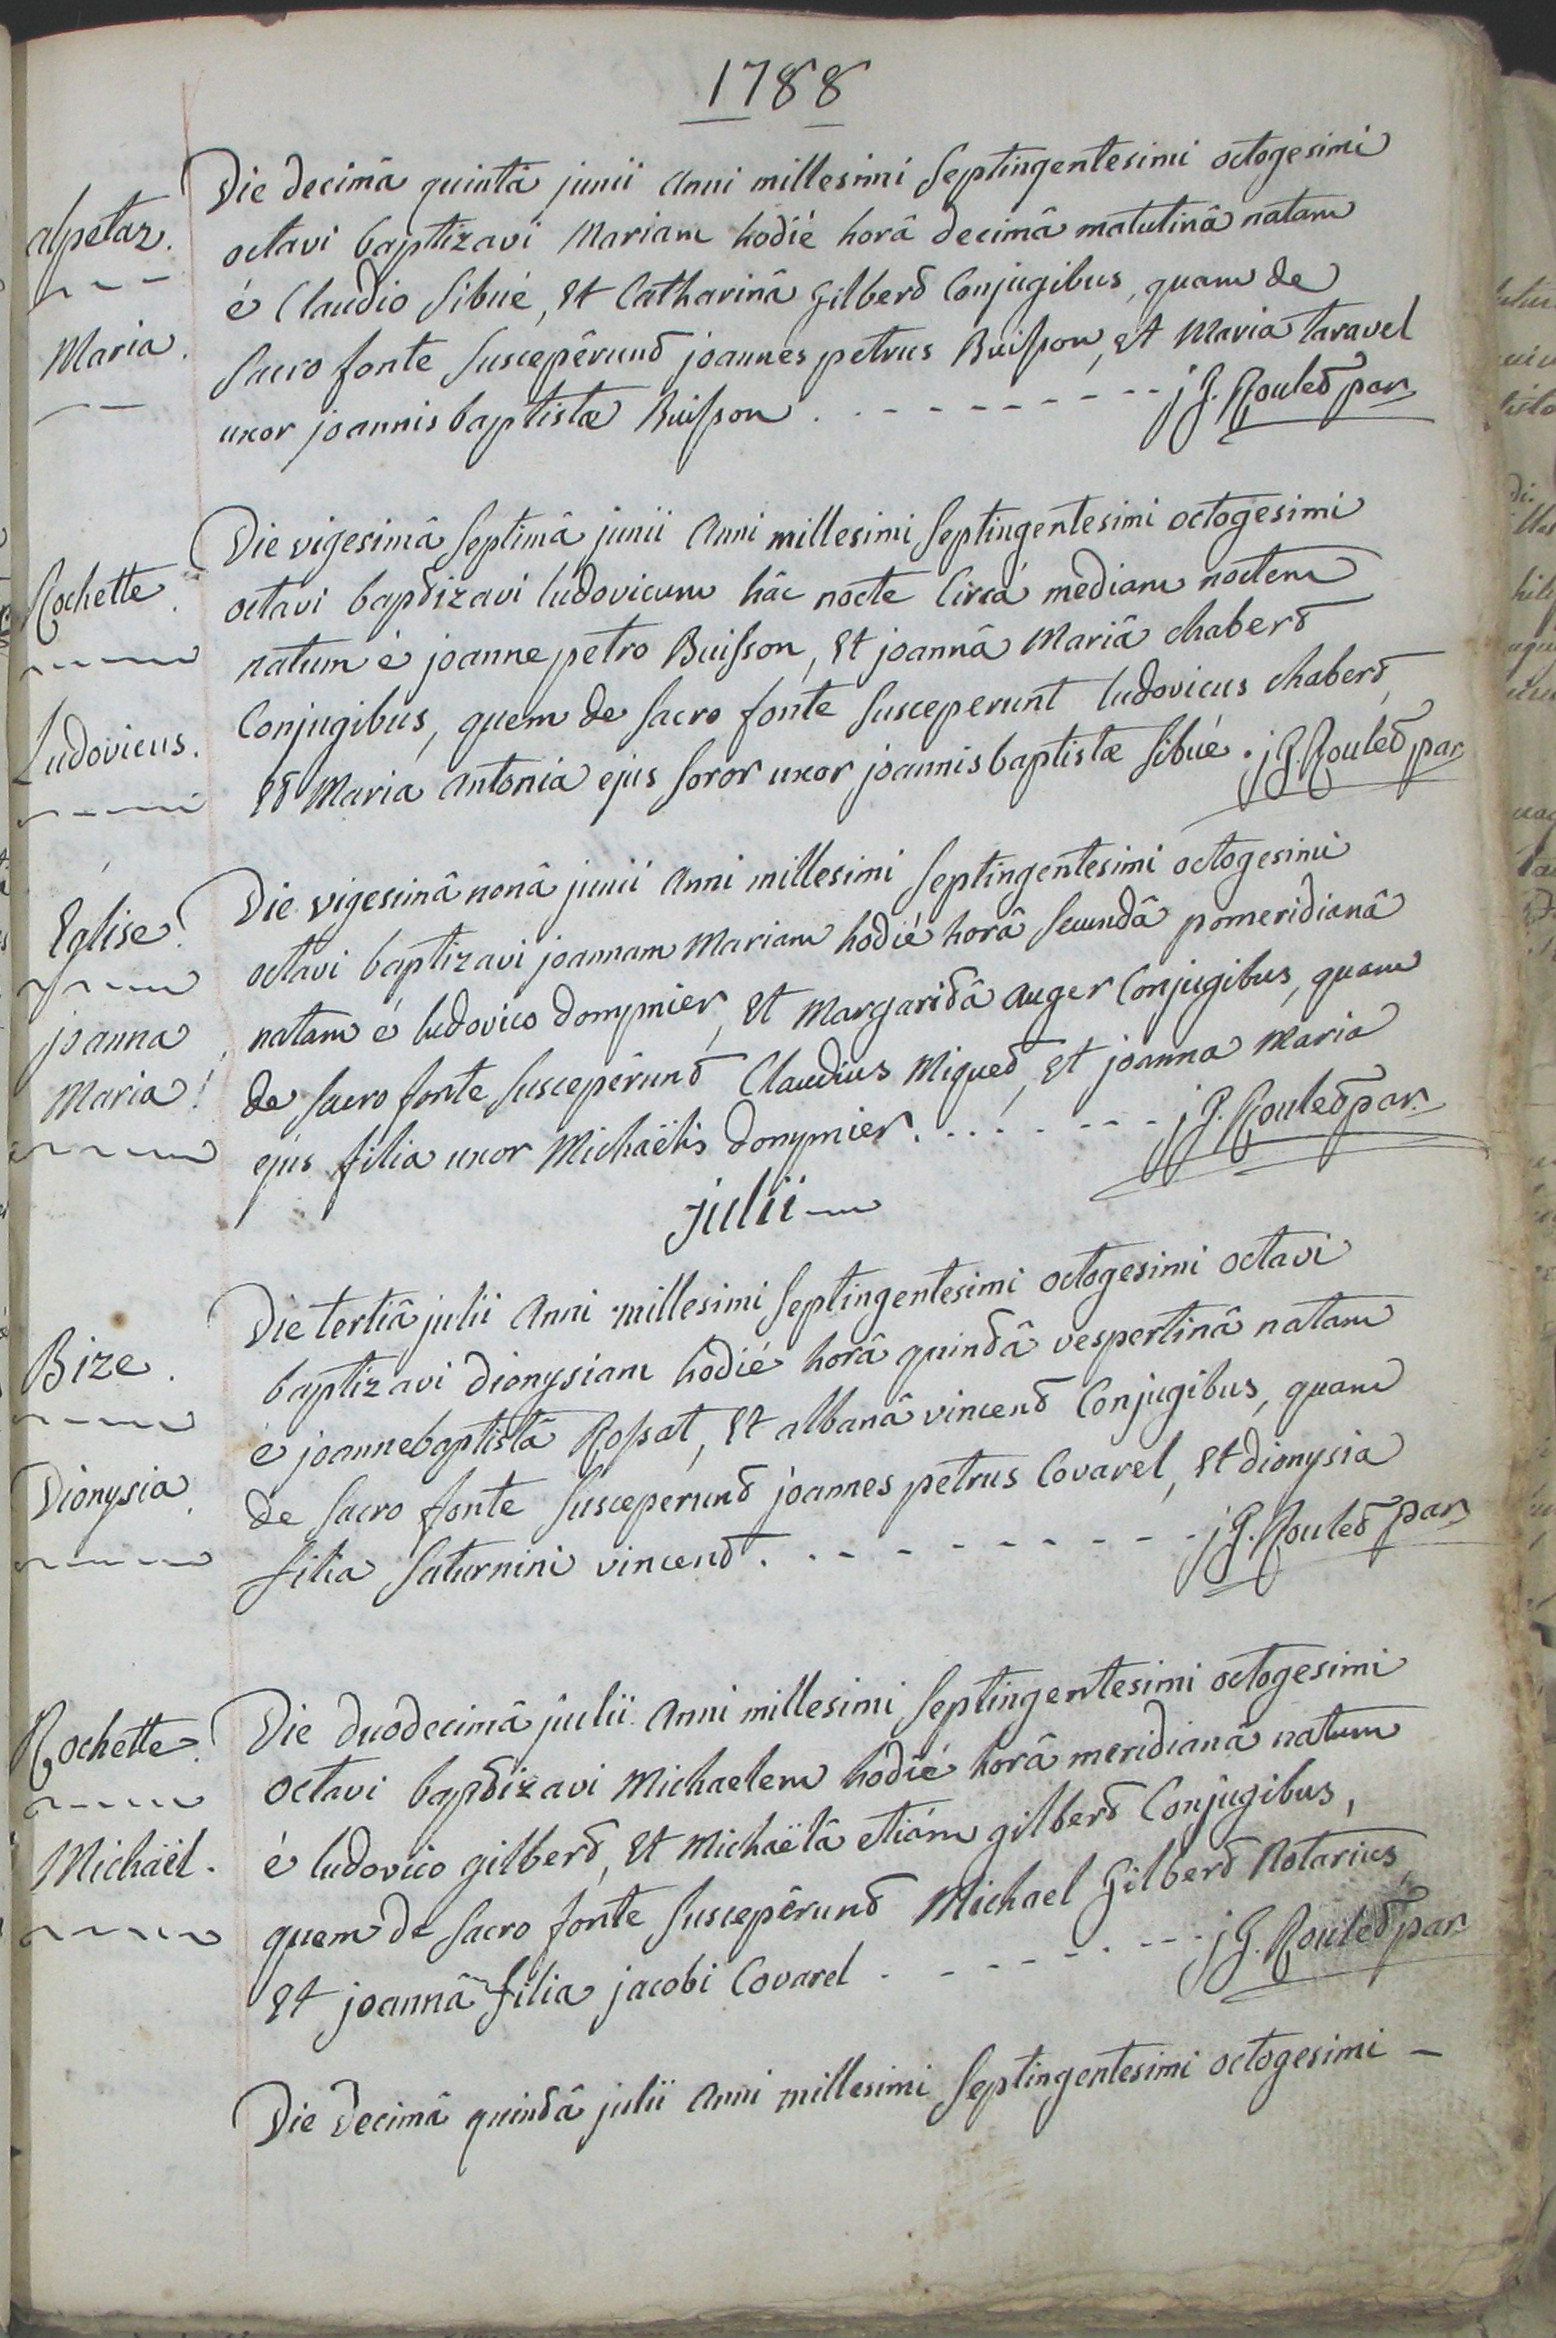 1788
alpetaz.
Maria.
Die decimâ quintâ junii anni millesimi septingentesimi octogesimi
octavi baptizavi Mariam hodié horâ decimâ matutinâ natam
é Claudio Sibué, et Catharinâ gilbert Conjugibus, quam de
sacro fonte suscepêrunt joannes petrus Buisson, et Maria taravel
uxor joannis baptistæ Buisson . - - - - - - - - - j G. Roulet par
Rochette.
Ludovicus.
Die vigesimâ septimâ junii anni millesimi septingentesimi octogesimi
octavi baptizavi ludovicum hâc nocte Circá mediam noctem
natum é joanne petro Buisson, et joannâ Mariâ chabert
Conjugibus, quem de sacro fonte susceperunt ludovicus chabert,
et Maria antonia ejus soror uxor joannis baptistæ Sibué . j G. Roulet par
Eglise.
joanna
Maria.
Die vigesimâ nonâ junii anni millesimi septingentesimi octogesimi
octavi baptizavi joannam Mariam hodié horâ secundâ pomeridianâ
natam é ludovico dompnier, et Margaritâ auger Conjugibus, quam
de sacro fonte suscepêrunt Claudius Miquet, et joanna Maria
ejus filia uxor Michaëlis dompnier . - - - - - - j G. Roulet par.
julii
Bize.
Dionysia.
Die tertiâ julii anni millesimi septingentesimi octogesimi octavi
baptizavi dionysiam hodié horâ quintâ vespertinâ natam
é joanne baptistâ Rossat, et albanâ vincent Conjugibus, quam
de sacro fonte susceperunt joannes petrus Covarel, et dionysia
filia Saturnini vincent . - - - - - - - - j G. Roulet par
Rochette.
Michaël.
Die duodecimâ julii anni millesimi septingentesimi octogesimi
octavi baptizavi Michaelem hodié horâ meridianâ natum
é ludovico gilbert, et Michaëlâ etiám gilbert Conjugibus,
quem de sacro fonte suscepêrunt Michael Gilbert Notarius,
et joannâ filia jacobi Covarel . - - - - - - - j G. Roulet par
Die decimâ quintâ julii anni millesimi septingentesimi octogesimi -